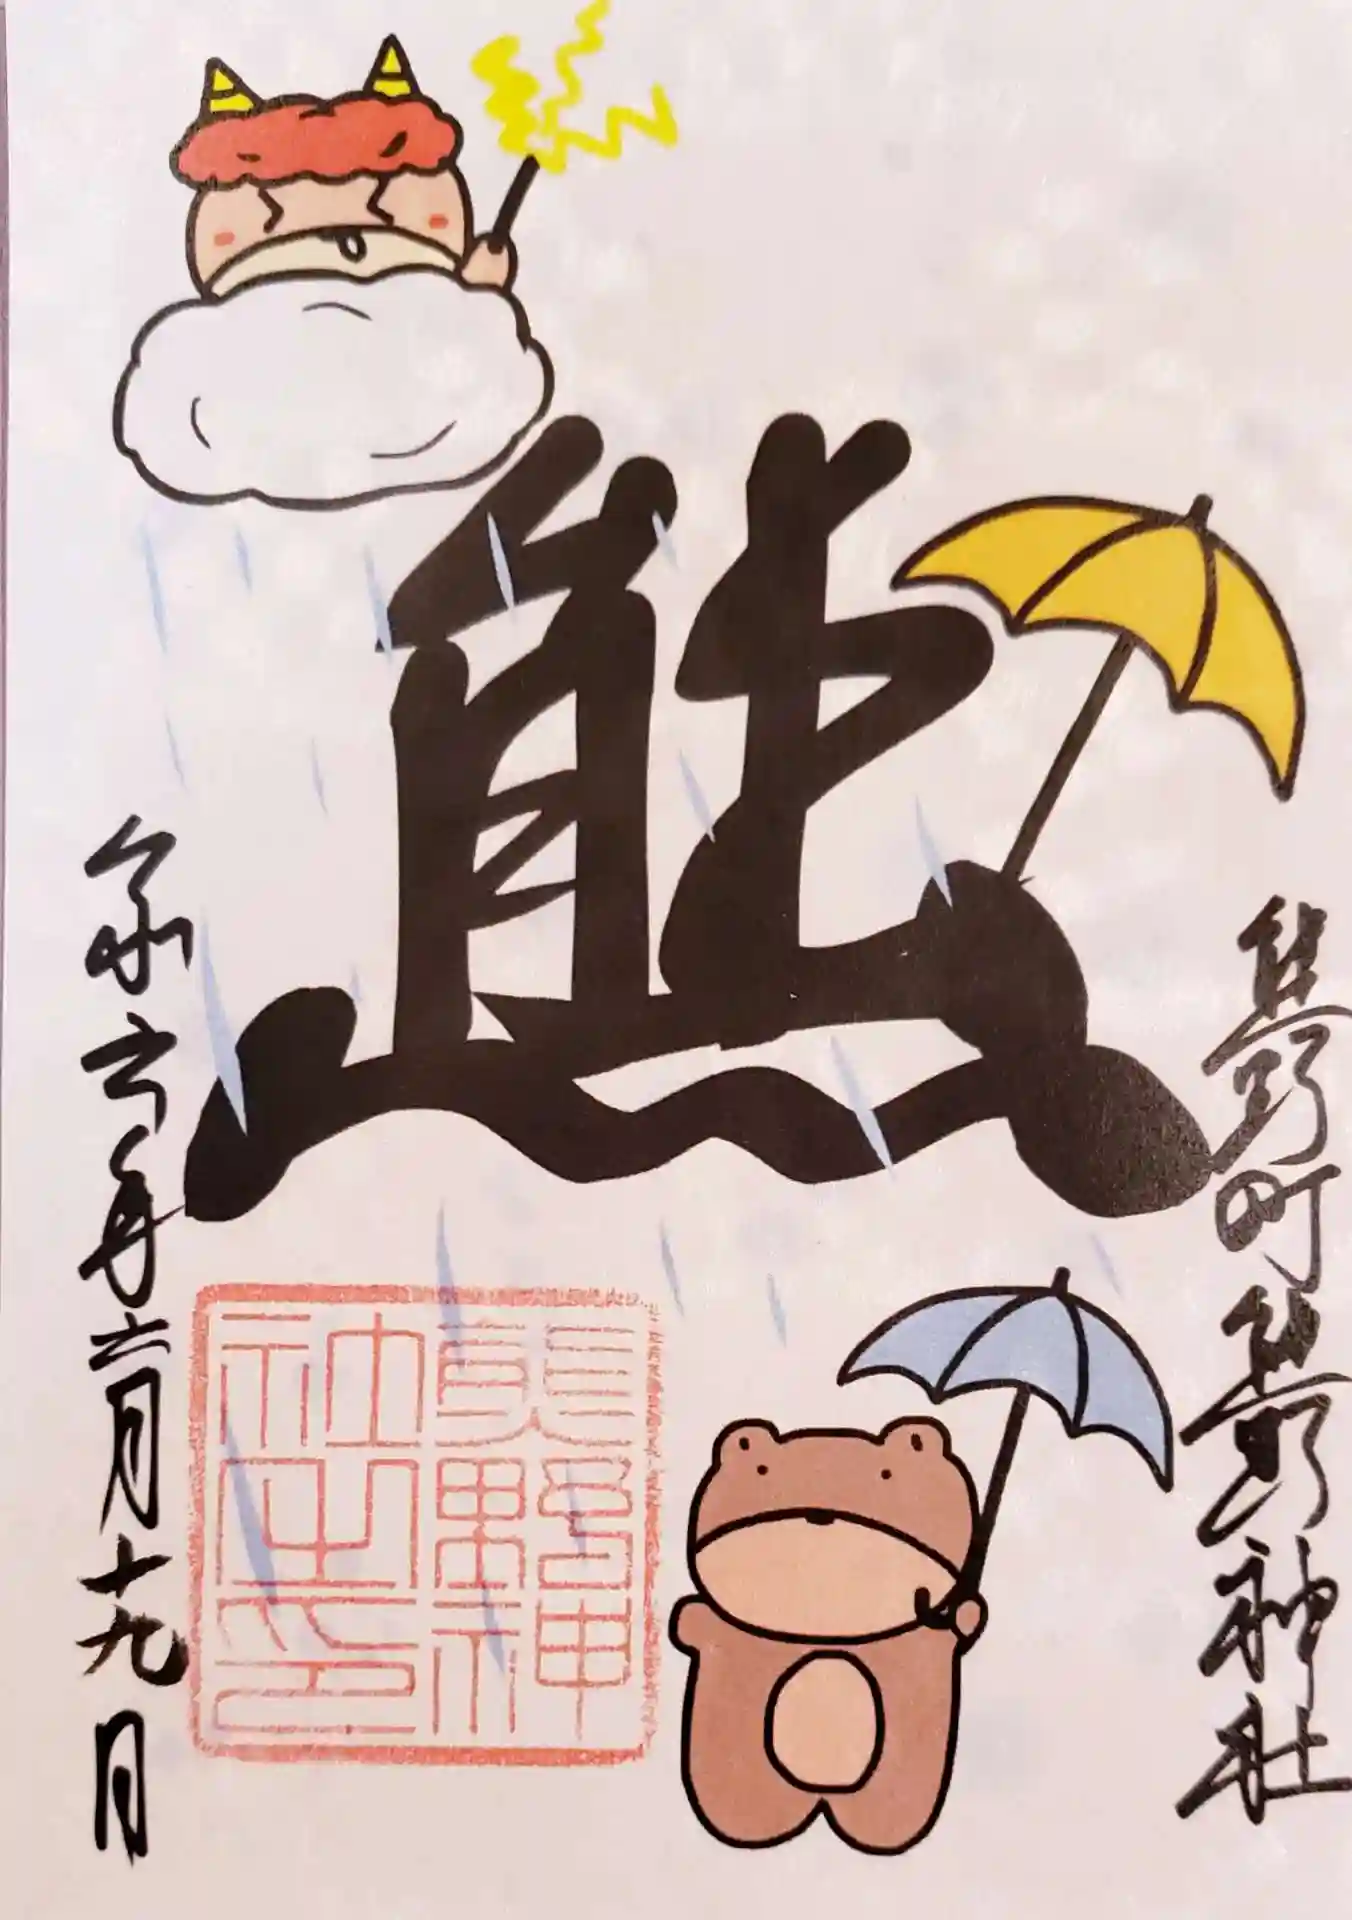 熊野町熊野神社
熊
令和六年六月十九日
熊野神
社之印